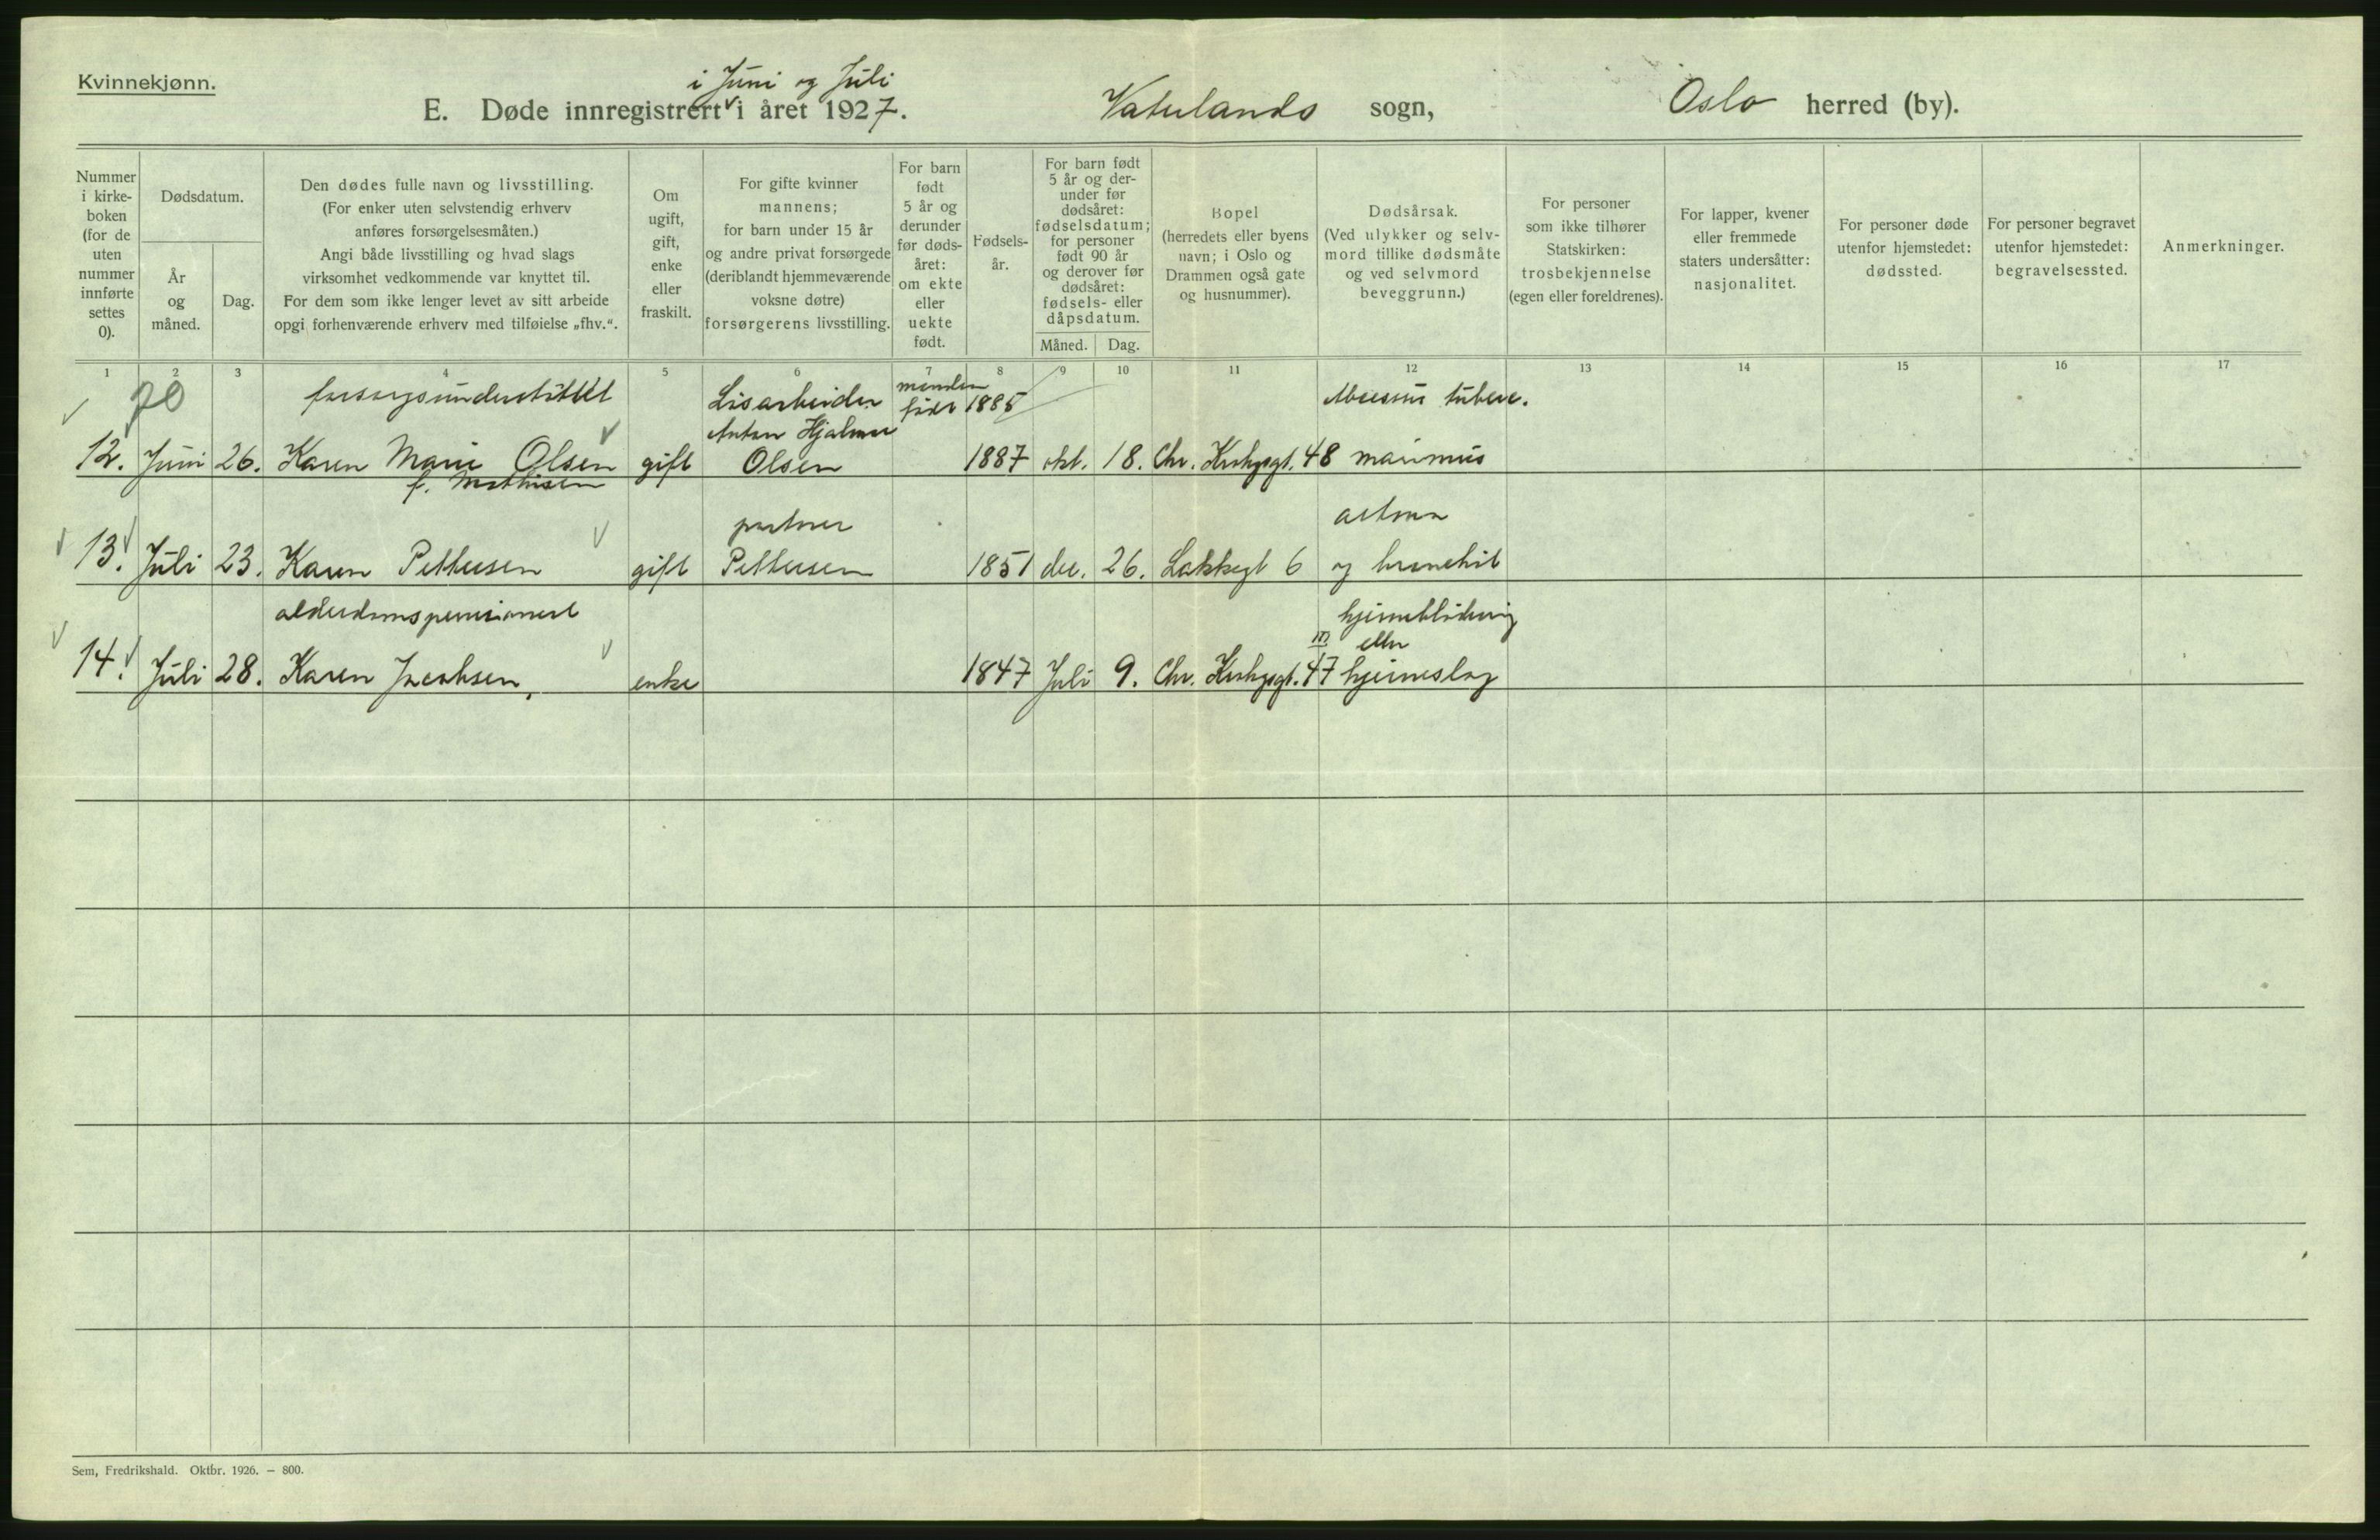 Kvinnekjønn.
i Juni og Juli
E. Døde innregistrert i året 1927. Vaterlands sogn, Oslo herred (by).
Nummer i kirkeboken (for de uten nummer innførte settes 0).
Dødsdatum.
År og måned.
Dag.
Den dødes fulle navn og livsstilling.
(For enker uten selvstendig erhverv
anføres forsørgelsesmåten.)
Angi både livsstilling og hvad slags
virksomhet vedkommende var knyttet til.
For dem som ikke lenger levet av sitt arbeide
opgi forhenværende erhverv med tilføielse „fhv.“.
Om
ugift,
gift,
enke
eller
fraskilt.
For gifte kvinner
mannens;
for barn under 15 år
og andre privat forsørgede
(deriblandt hjemmeværende
voksne døtre)
forsørgerens livsstilling.
For barn
født
5 år og
derunder
før døds-
året:
om ekte
eller
uekte
født.
Fødsels-
år.
For barn født
5 år og der-
under før
dødsåret:
fødselsdatum;
for personer
født 90 år
og derover før
dødsåret:
fødsels- eller
dåpsdatum.
Måned.
Dag.
Bopel
(herredets eller byens
navn; i Oslo og
Drammen også gate
og husnummer).
Dødsårsak.
(Ved ulykker og selv-
mord tillike dødsmåte
og ved selvmord
beveggrunn.)
For personer
som ikke tilhører
Statskirken:
trosbekjennelse
(egen eller foreldrenes).
For lapper, kvener
eller fremmede
staters undersåtter:
nasjonalitet.
For personer døde
utenfor hjemstedet:
dødssted.
For personer begravet
utenfor hjemstedet:
begravelsessted.
Anmerkninger.
1 2 3 4 5 6 7 8 9 10 11 12 13 14 15 16 17
forsorgsunderstøttet Løsarbeider manden født 1885
Anton Hjalmar
12. Juni 26. Karen Marie Olsen gift Olsen 1887 okt. 18. Chr. Krohgsgt. 48
f. Mathisen
partner astma
13. Juli 23. Karen Pettersen gift Pettersen 1851 dec. 26. Lakkegt 6 og bronchit
alderdomspensionert hjerneblødning
III eller
14. Juli 28. Karen Jacobsen, enke 1847 Juli 9. Chr. Krohgsgt. 47 hjerneslag
Sem, Fredrikshald. Oktbr. 1926. – 800.